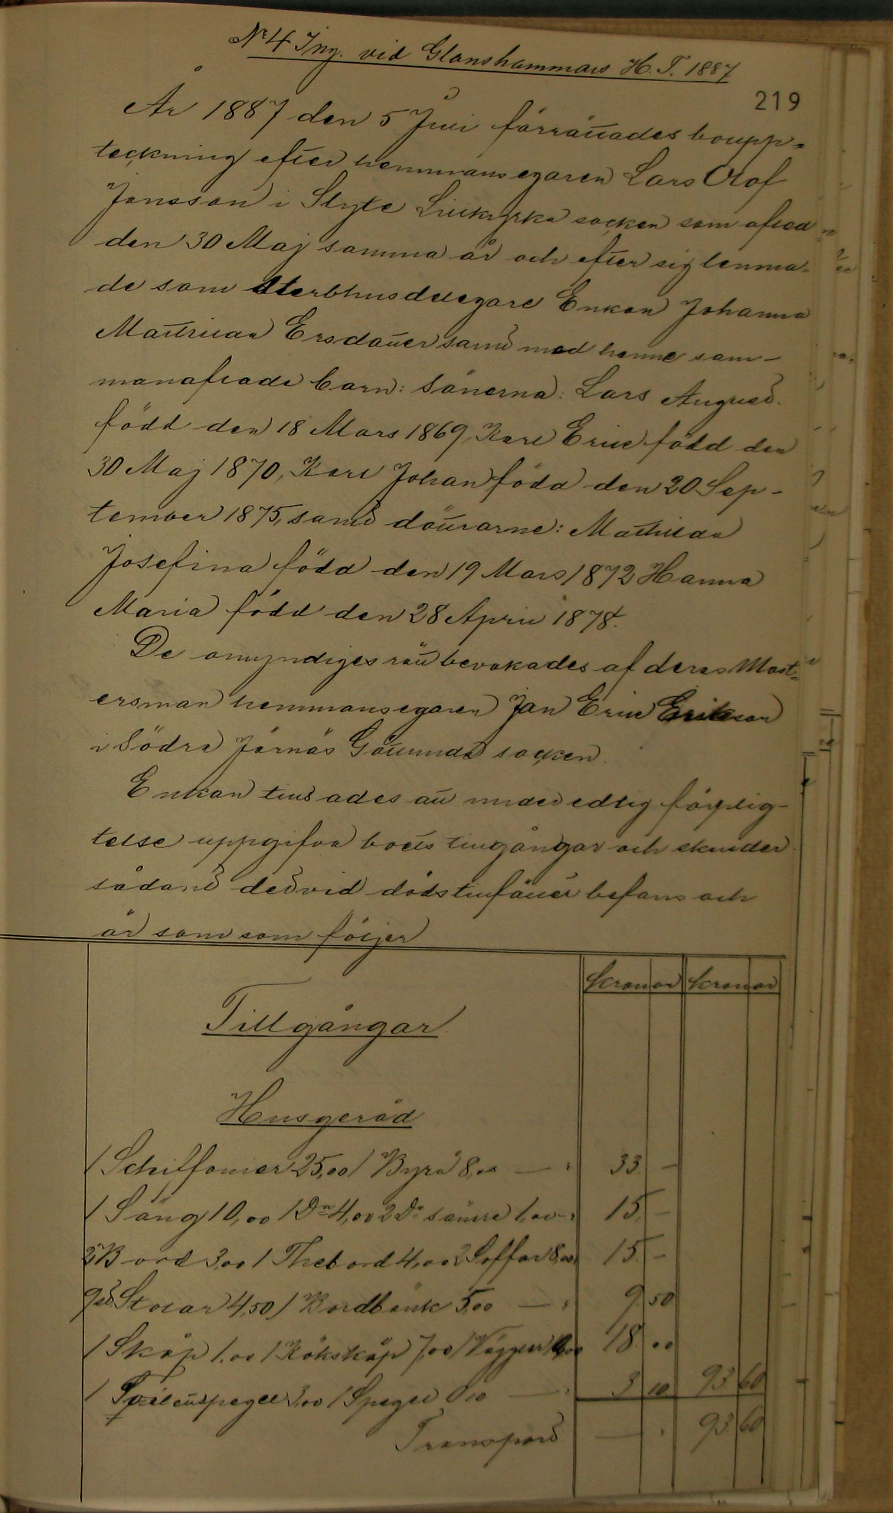 No 4 Ing. vid Glanshammars H.T. 1887
219
År 1887 den 5 Juli förrättades boupp=
teckning efter hemmansegaren Lars Olof
Jonsson i Slyte Lillkyrka socken som afled
den 30 Maj samma år och efter sig lemna-
de som sterbhusdelegare Enkan Johanna
Mathilda Ersdotter samt med henne sam-
manaflade barn: Sönerna: Lars August
född den 18 Mars 1869, Karl Eric född den
30 Maj 1870, Karl Johan född den 20 Sep-
tember 1875, samt döttrarne: Mathilda
Josefina född den 19 Mars 1872 Hanna
Maria född den 28 April 1878.
De omyndiges rätt bevakades af deras Most-
ersman hemmansegaren Jan Eric Erikson
i Södra Järnäs Götlunda socken.
Enkan tillsades att under edlig förplig-
telse uppgifva boets tillgångar och skulder
sådant det vid dödstillfället befans och
är som som följer
kronor kronor
Tillgångar
Husgeråd
1 Schiffonier 25,00 1 Byrå 8,00 — " 33 -
1 Säng 10,00 1 Do 4,00 2 Do sämre 1,00 " 15 -
2 Bord 3,00 1 Thebord 4,00 2 Soffor 8,00 15 -
9 st Stolar 4,50 1 Bordbänk 5,00 — " 9 50
1 Skåp 1,00 1 Kökskåp 7,00 1 Väggur 18 00
1 3,00 1 Spegel 0,10 — " 3 10 93 60
Transport — " 93 60